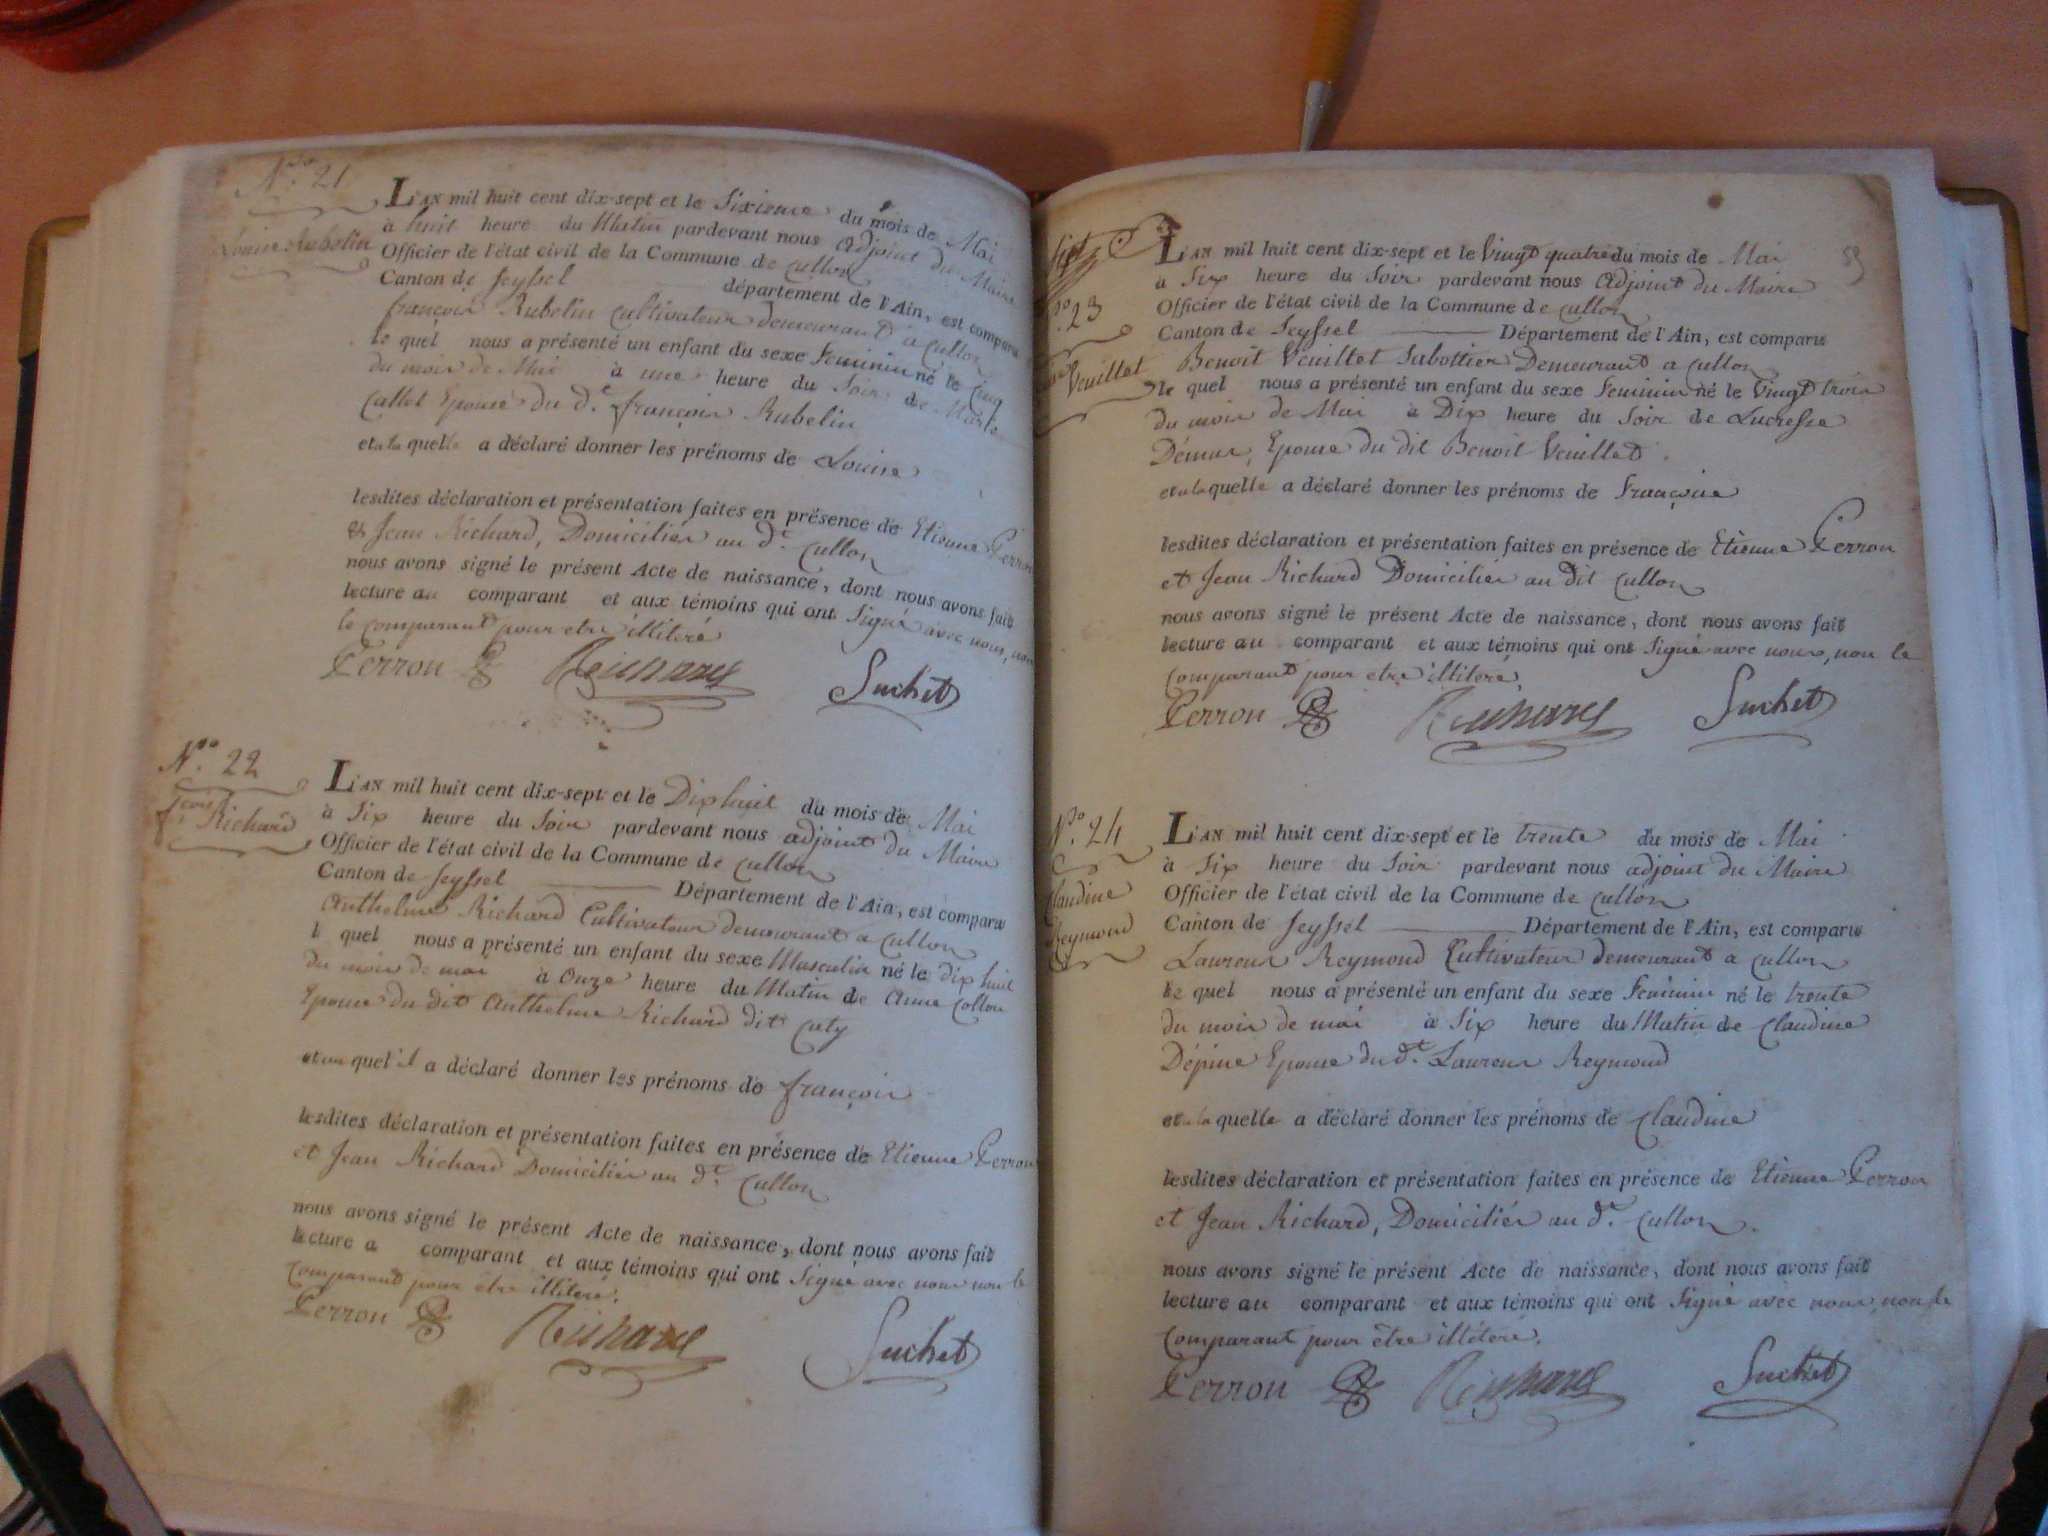 N.ro 21
Louise Rubelin
L'AN mil huit cent dix-sept et le Sixieme du mois de Mai
à huit heure du Matin pardevant nous Adjoint du Maire
Officier de l'état civil de la Commune de Cullon
Canton de Seyssel département de l'Ain, est comparu
françois Rubelin Cultivateur demeurant à Cullon
le quel nous a présenté un enfant du sexe Feminin né le Cinq
du mois de Mai à une heure du Soir de Marie
Callet Epouse du d.t françois Rubelin
et a la quelle a déclaré donner les prénoms de Louise
lesdites déclaration et présentation faites en présence de Etienne Perron
& Jean Richard, Domiciliés au d.t Cullon
nous avons signé le présent Acte de naissance, dont nous avons fait
lecture au comparant et aux témoins qui ont Signé avec nous, non
le comparant pour etre illiteré
Perron Richard Suchet
N.ro 22
f.çois Richard
L'AN mil huit cent dix-sept et le Dix huit du mois de Mai
à Six heure du Soir pardevant nous adjoint du Maire
Officier de l'état civil de la Commune de Cullon
Canton de Seyssel Département de l'Ain, est comparu
Anthelme Richard Cultivateur demeurant a Cullon
l quel nous a présenté un enfant du sexe Masculin né le dix huit
du mois de mai à Onze heure du Matin de Anne Collon
Epouse du dit Anthelme Richard dit Cuty
et au quel il a déclaré donner les prénoms de françois
lesdites déclaration et présentation faites en présence de Etienne Perron
et Jean Richard Domiciliés au d.t Cullon
nous avons signé le présent Acte de naissance, dont nous avons fait
lecture a comparant et aux témoins qui ont Signé avec nous non le
Comparant pour etre illiteré.
Perron Richard Suchet
53
N.ro 23
Veuillet
L'AN mil huit cent dix-sept et le Vingt quatre du mois de Mai
à Six heure du Soir pardevant nous Adjoint du Maire
Officier de l'état civil de la Commune de Cullon
Canton de Seyssel Département de l'Ain, est comparu
Benoit Veuillet Sabottier Demeurant a Cullon
le quel nous a présenté un enfant du sexe Feminin né le Vingt trois
du mois de Mai à Dix heure du Soir de Lucresse
Démur, Epouse du dit Benoit Veuillet.
et a la quelle a déclaré donner les prénoms de Françoise
lesdites déclaration et présentation faites en présence de Etienne Perron
et Jean Richard Domiciliés au dit Cullon
nous avons signé le présent Acte de naissance, dont nous avons fait
lecture au comparant et aux témoins qui ont Signé avec nous, non le
Comparant pour etre illiteré,
Perron Richard Suchet
N.ro 24
Claudine
Reymond
L'AN mil huit cent dix-sept et le trente du mois de Mai
à Six heure du Soir pardevant nous adjoint du Maire
Officier de l'état civil de la Commune de Cullon
Canton de Seyssel Département de l'Ain, est comparu
Laurens Reymond Cultivateur demeurant a Cullon
le quel nous a présenté un enfant du sexe Feminin né le trente
du mois de mai à Six heure du Matin de Claudine
Dépine Epouse du d.t Laurens Reymond
et a la quelle a déclaré donner les prénoms de Claudine
lesdites déclaration et présentation faites en présence de Etienne Perron
et Jean Richard, Domiciliés au d.t Cullon.
nous avons signé le présent Acte de naissance, dont nous avons fait
lecture au comparant et aux témoins qui ont Signé avec nous, non le
Comparant pour être illiteré.
Perron Richard Suchet